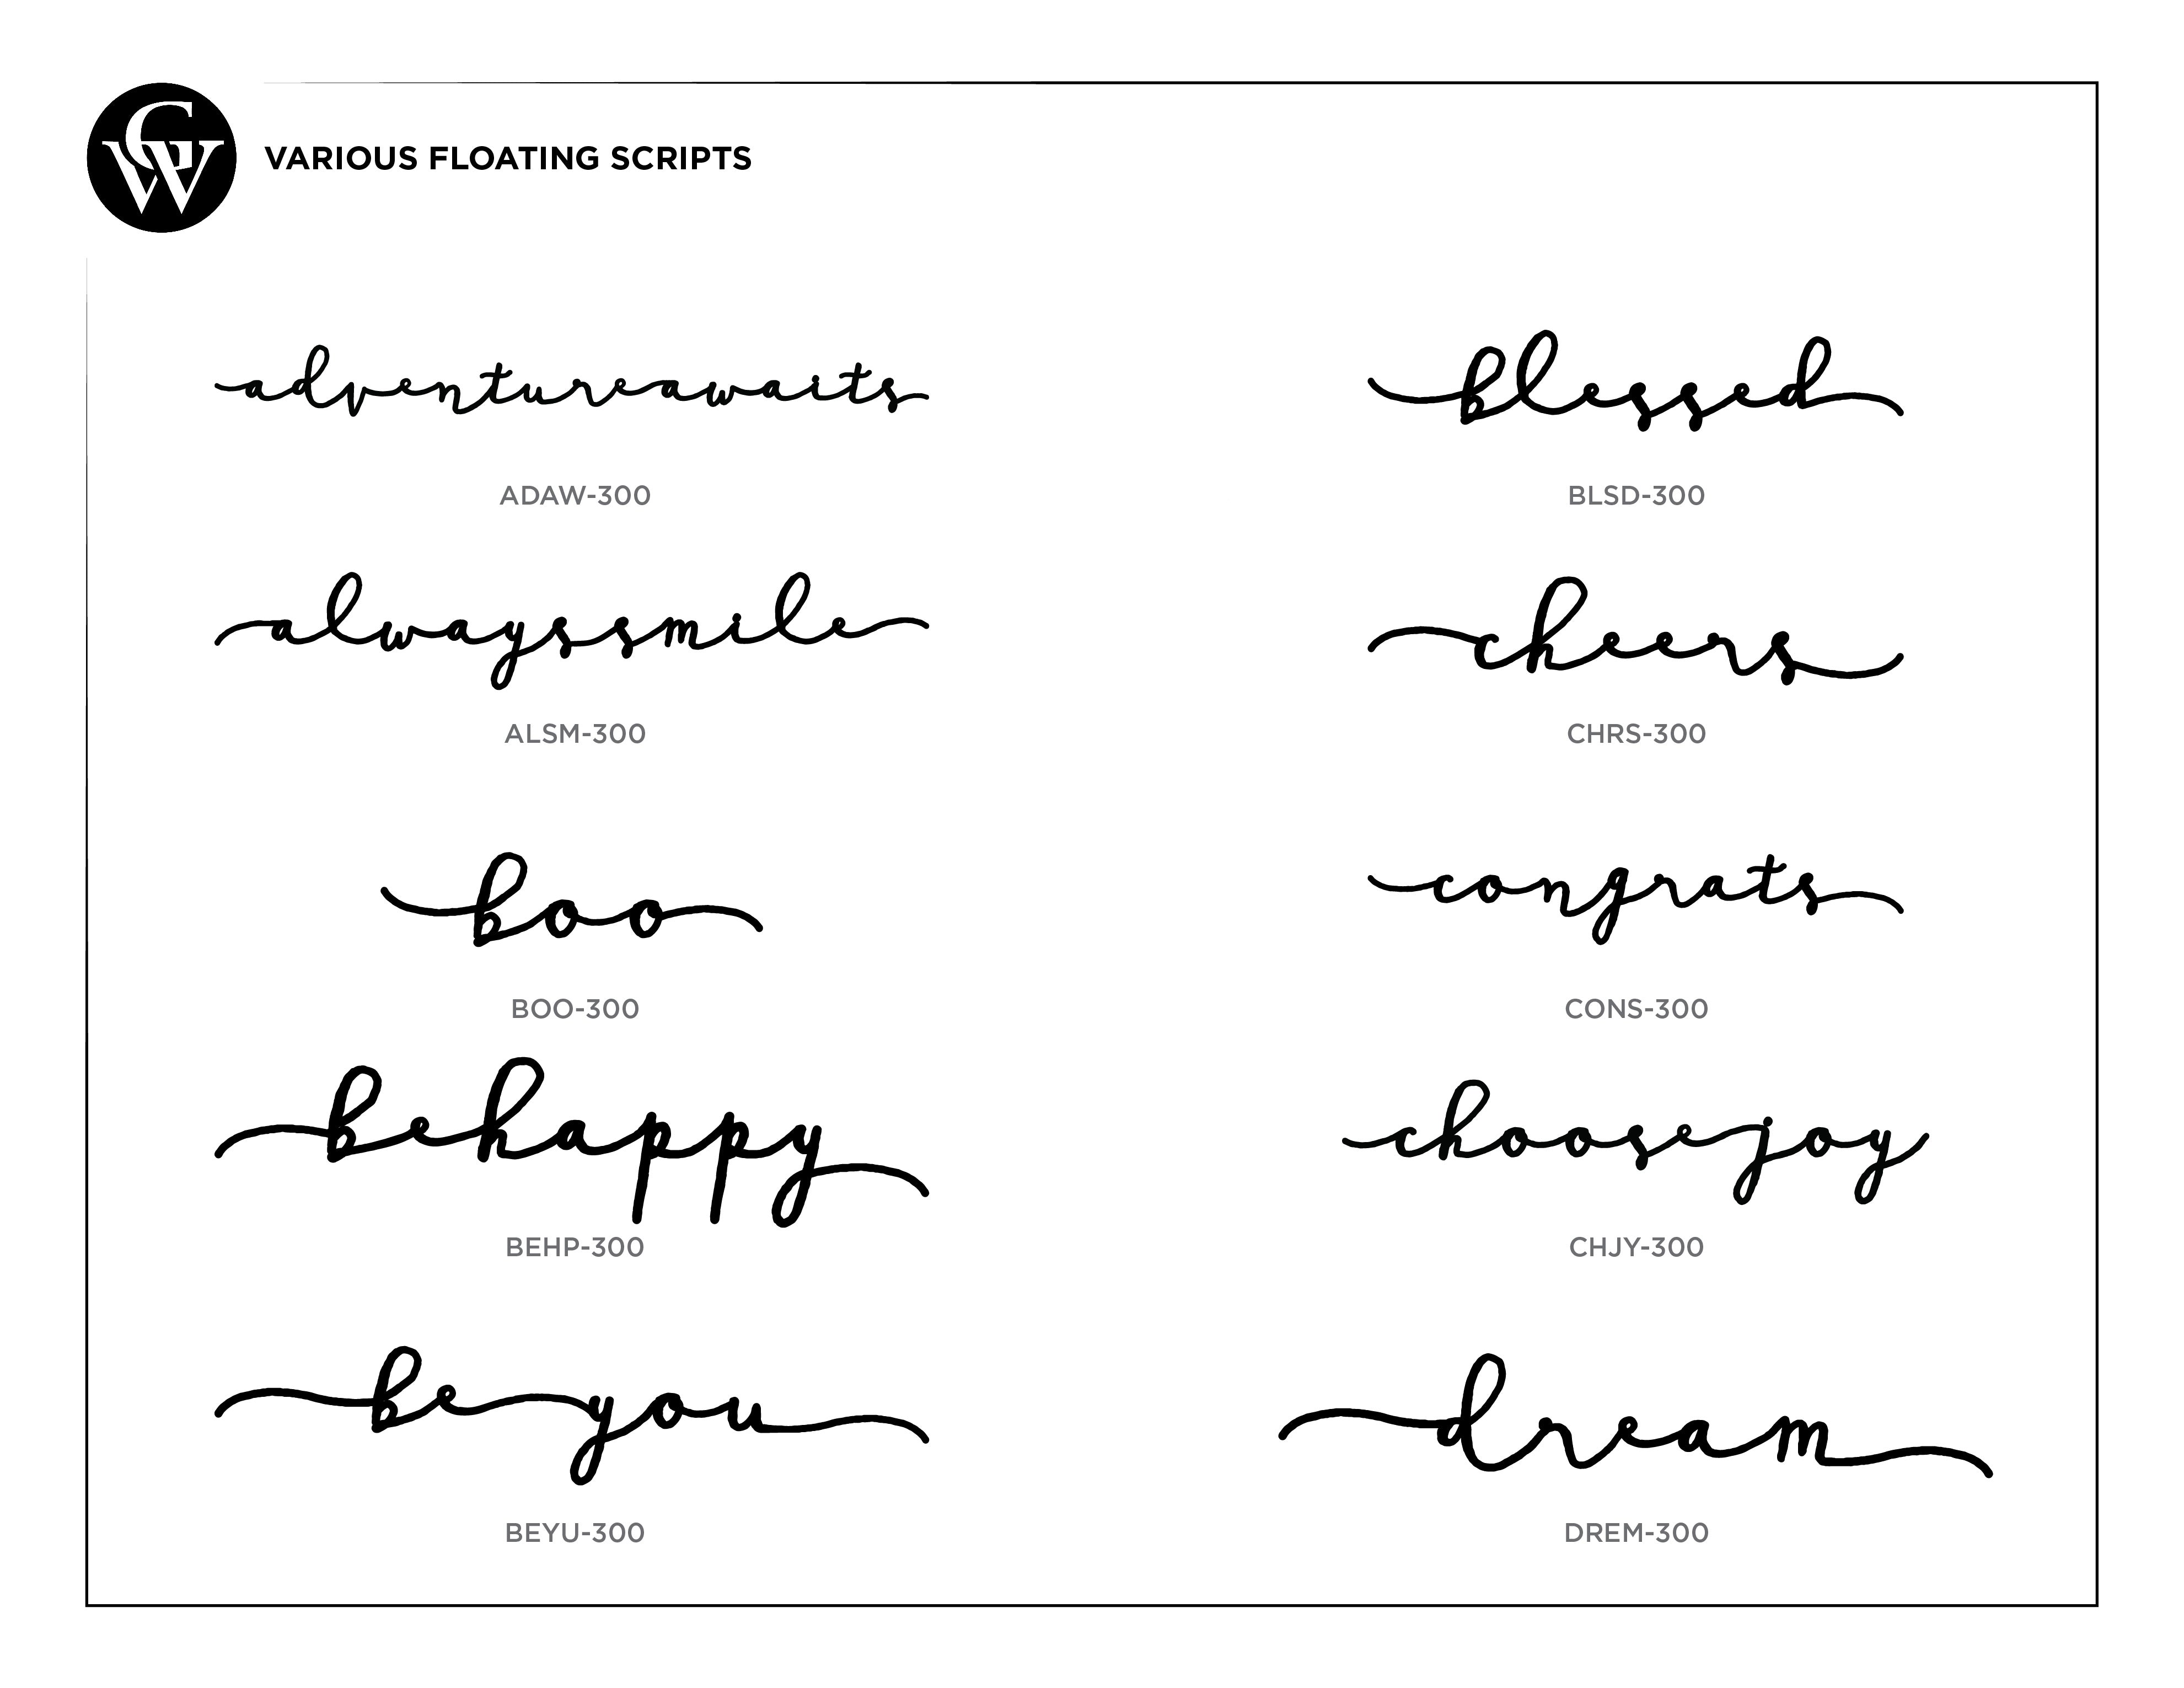 GW
VARIOUS FLOATING SCRIPTS
adventureawaits
ADAW-300
blessed
BLSD-300
alwayssmile
ALSM-300
cheers
CHRS-300
boo
BOO-300
congrats
CONS-300
behappy
BEHP-300
choosejoy
CHJY-300
beyou
BEYU-300
dream
DREM-300